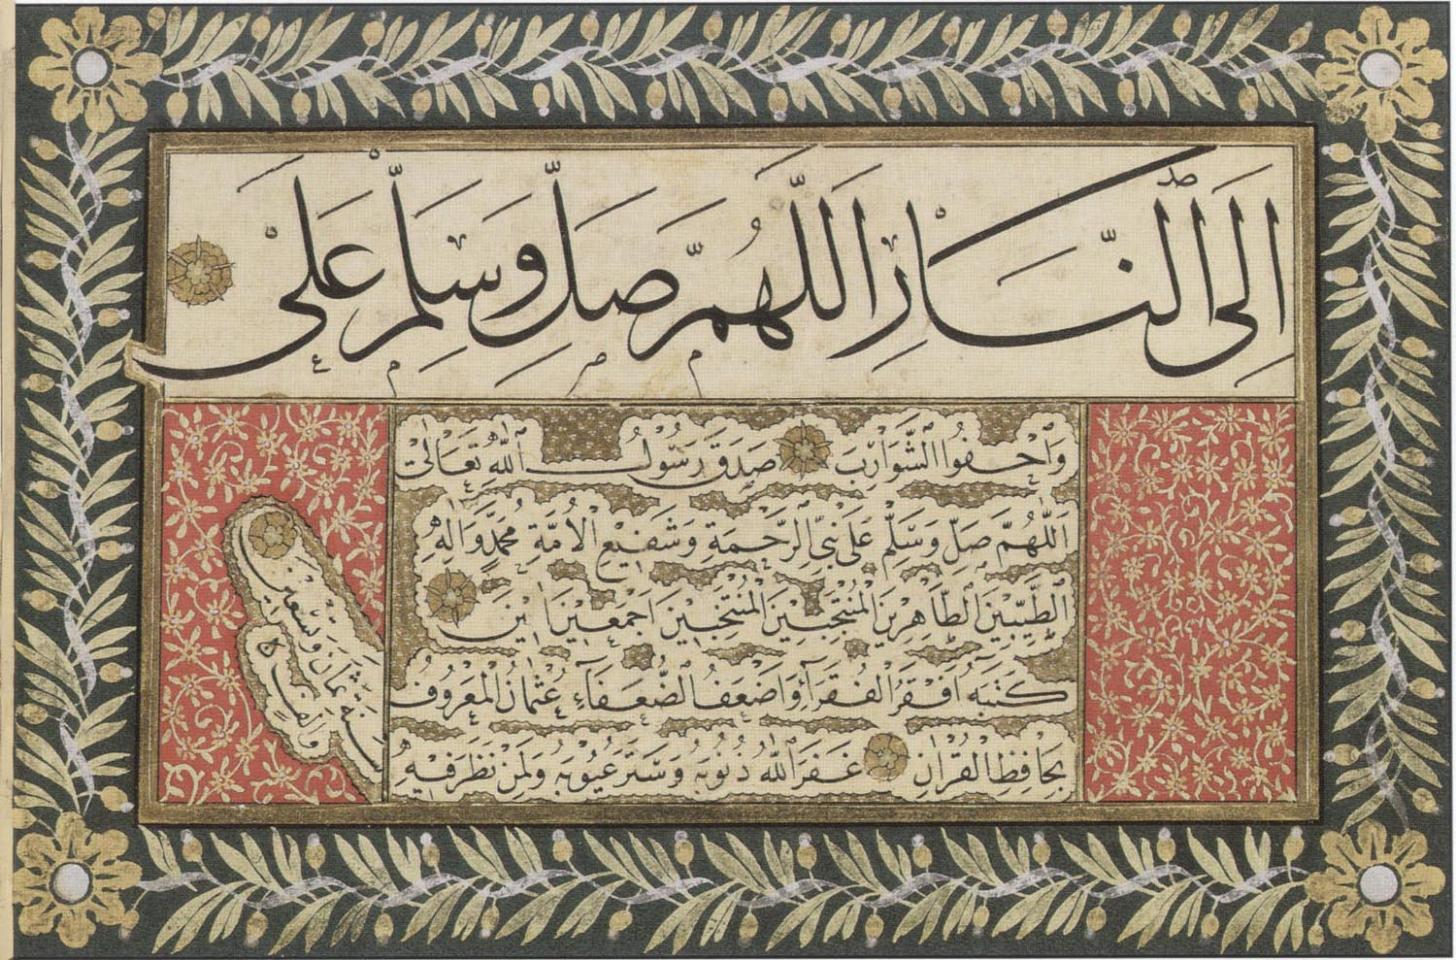 اِلَى النَّارِ اَللّٰهُمَّ صَلِّ وَسَلِّمْ عَلٰى
وَاحْفُوا الشَّوَارِبَ صَدَقَ رَسُولُ اللّٰهِ تَعَالٰى
اَللّٰهُمَّ صَلِّ وَسَلِّمْ عَلٰى نَبِيِّ الرَّحْمَةِ وَشَفِيْعِ الْاُمَّةِ مُحَمَّدٍ وَاٰلِهِ
الطَّيِّبِيْنَ الطَّاهِرِيْنَ الْمُنْتَجَبِيْنَ الْمُنْتَخَبِيْنَ اَجْمَعِيْنَ اٰمِيْنَ
كَتَبَهُ اَفْقَرُ الْفُقَرَاءِ وَاَضْعَفُ الضُّعَفَاءِ عُثْمَانُ الْمَعْرُوفُ
بِحَافِظِ الْقُرْاٰنِ غَفَرَ اللّٰهُ ذُنُوبَهُ وَسَتَرَ عُيُوبَهُ وَلِمَنْ نَظَرَ فِيْهِ
سنة ثمان وتسعين